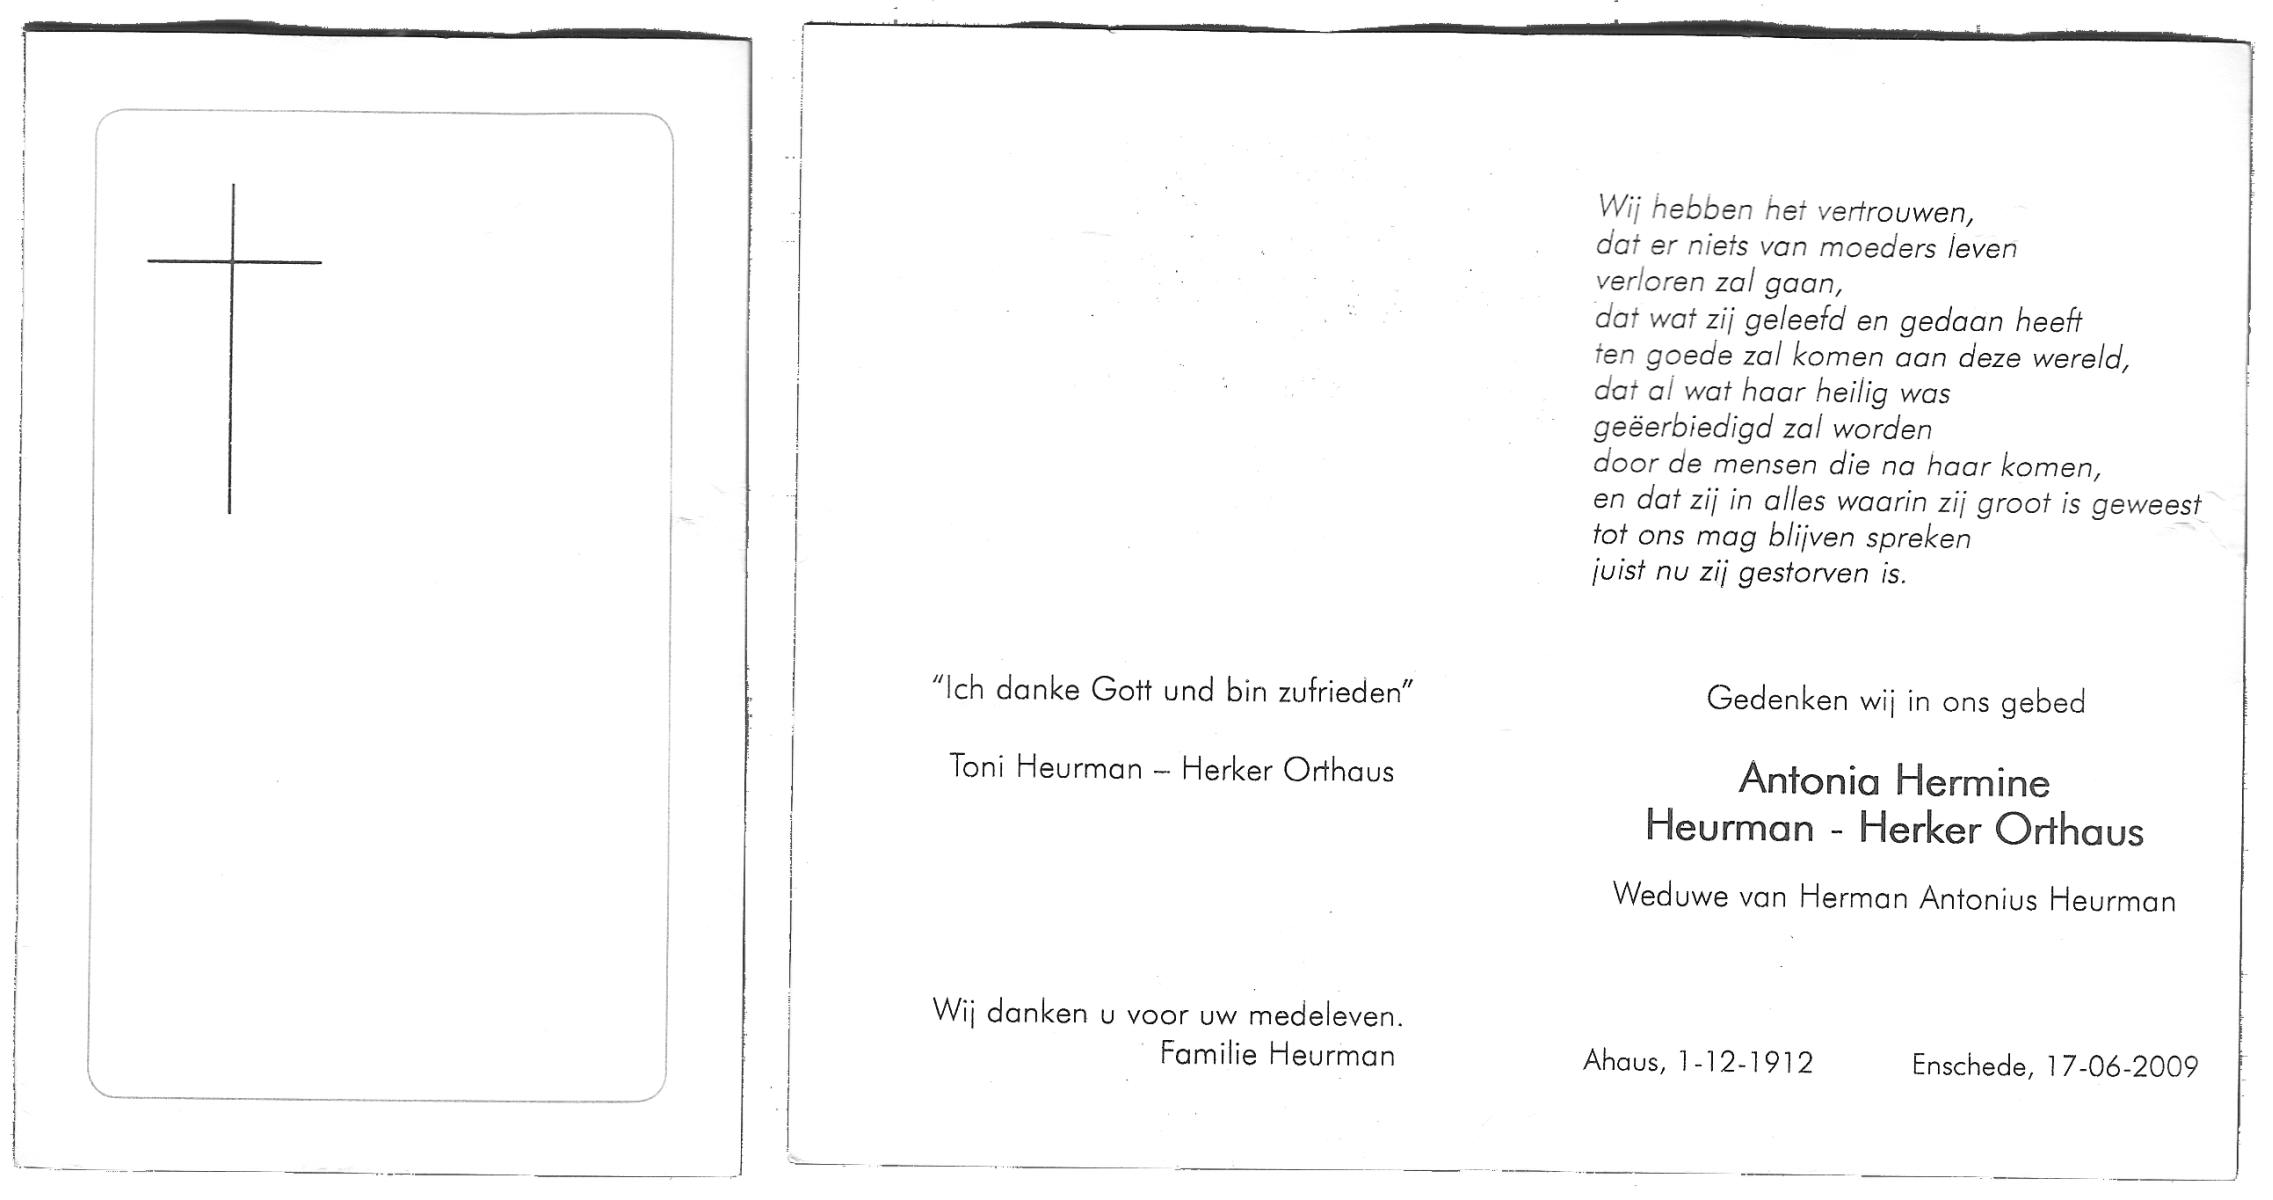 "Ich danke Gott und bin zufrieden"
Toni Heurman – Herker Orthaus
Wij danken u voor uw medeleven.
Familie Heurman
Wij hebben het vertrouwen,
dat er niets van moeders leven
verloren zal gaan,
dat wat zij geleefd en gedaan heeft
ten goede zal komen aan deze wereld,
dat al wat haar heilig was
geëerbiedigd zal worden
door de mensen die na haar komen,
en dat zij in alles waarin zij groot is geweest
tot ons mag blijven spreken
juist nu zij gestorven is.
Gedenken wij in ons gebed
Antonia Hermine
Heurman - Herker Orthaus
Weduwe van Herman Antonius Heurman
Ahaus, 1-12-1912 Enschede, 17-06-2009